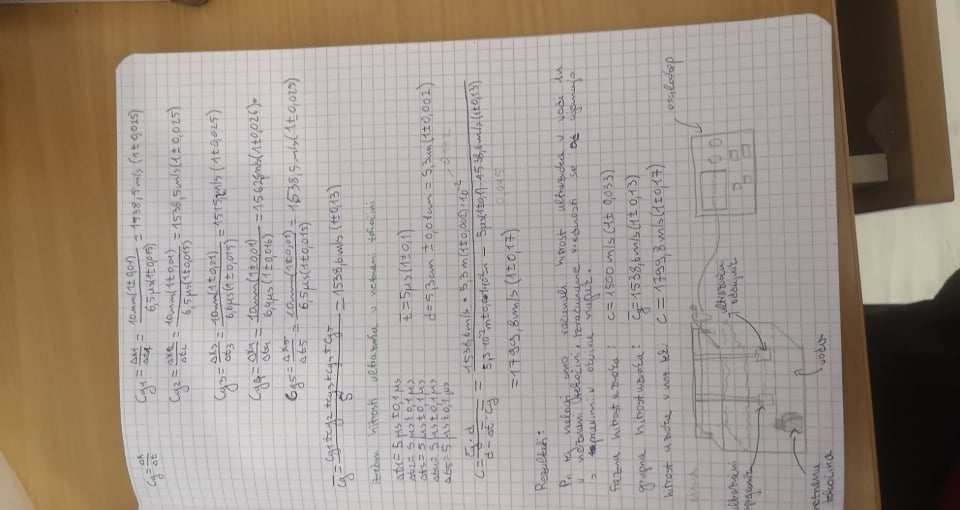 Cg = Δx/Δt
Cg1 = Δx1/Δt1 = 10mm(1±0,01)/6,5μs(1±0,015) = 1538,5m/s (1±0,025)
Cg2 = Δx2/Δt2 = 10mm(1±0,01)/6,5μs(1±0,015) = 1538,5m/s(1±0,025)
Cg3 = Δx3/Δt3 = 10mm(1±0,01)/6,6μs(1±0,015) = 1515m/s (1±0,025)
Cg4 = Δx4/Δt4 = 10mm(1±0,01)/6,4μs(1±0,016) = 1562m/s(1±0,026)
Cg5 = Δx5/Δt5 = 10mm(1±0,01)/6,5μs(1±0,015) = 1538,5m/s(1±0,025)
C̄g = Cg1+Cg2+Cg3+Cg4+Cg5/5 = 1538,6m/s (1±0,13)
hitrosti ultrazvoka v neznani tekočini
Δt1 = 5μs ±0,1μs
Δt2 = 5μs±0,1μs
Δt3 = 5μs±0,1μs
Δt4 = 5μs±0,1μs
Δt5 = 5μs±0,1μs
t̄ = 5μs(1±0,1)
d = 5,3cm ±0,01cm = 5,3cm(1±0,002)
C = C̄g·d/d - Δt·C̄g = 1538,6m/s · 5,3m(1±0,002)·10⁻²/5,3·10⁻²m - 5μs(1±0,1)·1538,6m/s(1±0,13)
0,045
= 1799,8m/s (1±0,17)
Rezultati:
Pri tej nalogi smo računali hitrost ultrazvoka v vodi in
v neznani tekočini. Izračunane vrednosti se ujemajo
v okviru napak.
fazna hitrost zvoka: c = 1500 m/s (1±0,033)
grupna hitrost zvoka: C̄g = 1538,6m/s(1±0,13)
hitrost zvoka v nez. tek.: c = 1799,8m/s(1±0,17)
skica
osciloskop
ultrazvočni
sprejemnik
ultrazvočni
oddajnik
neznana
tekočina
voda